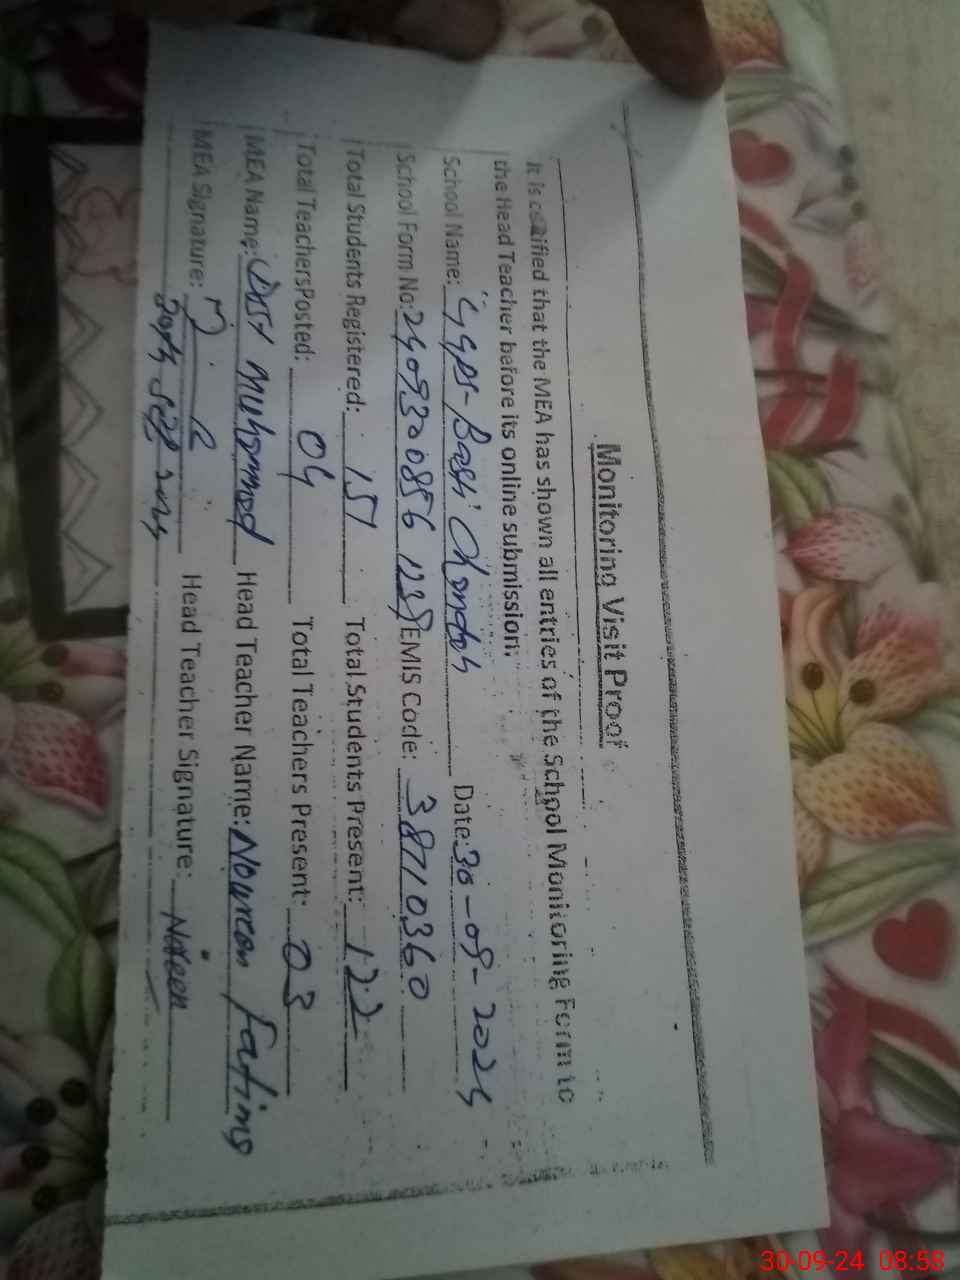 Monitoring Visit Proof
It is certified that the MEA has shown all entries of the School Monitoring Form to
the Head Teacher before its online submission.
School Name: GGPS- Basti Date: 30-09-2024
School Form No: EMIS Code: 38710360
Total Students Registered: 151 Total Students Present: 122
Total TeachersPosted: 04 Total Teachers Present: 03
MEA Name: Muhammad Head Teacher Name: Noureen Fatima
MEA Signature: Head Teacher Signature: Noreen
30-09-24 08:58